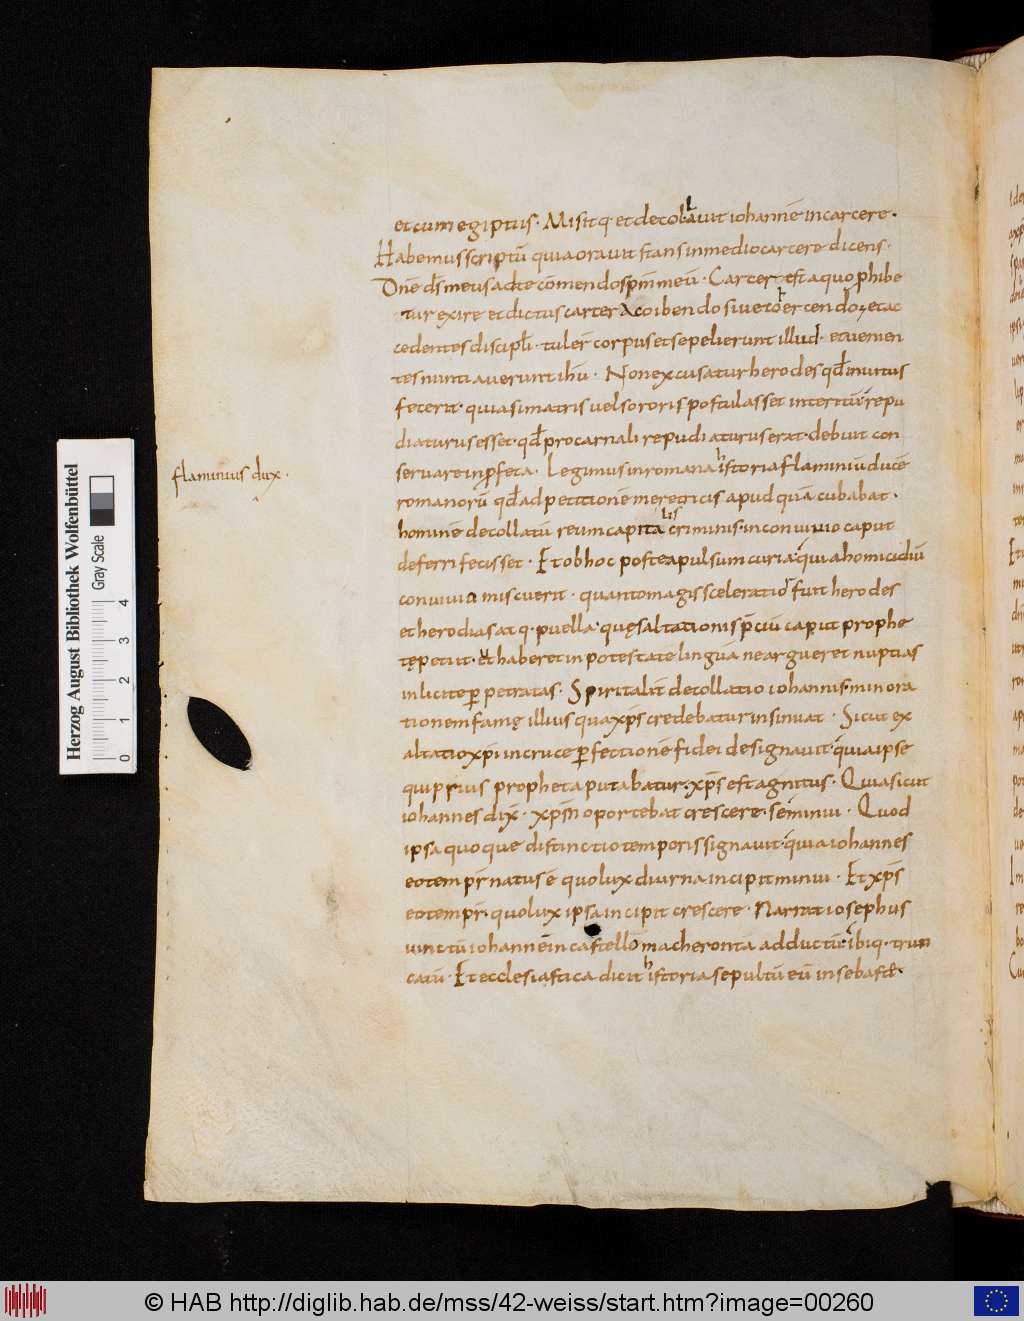 et cum egiptus· Misitq· et decolłauit iohannē in carcere·
Habemus scriptū quia orauit stans in medio carcere dicens·
Dn̄e d̄s meus ad te cōmendo sp̄m meū· Carcer est a quo phibe
tur exire et dictus carcer a coibendo siue coercendo; et ac
cedentes discipłi· tuler̄ corpus et sepelierunt illud· et uenien
tes nuntiauerunt ihū· Non excusatur herodes qd̄ inuitus
fecerit· quia si matris uel sororis postulasset interitū repu
diaturus esset· qd̄ pro carnali repudiaturus erat· debuit con
seruare in pfeta· Legimus in romana historia flaminiū ducē
romanorū qd̄ ad petitionē meretricis apud quā cubabat·
hominē decollatū reum capitalis criminis· in conuiuio caput
deferri fecisset· Et ob hoc postea pulsum curia· qui a homicidiū
conuiuio miscuerit· quanto magis sceleratior fuit herodes
et herodias atq· puella· quę saltationis p̄ciū caput prophe
tę petiit· & haberet in potestate linguā ne argueret nuptias
inlicite ppetratas· Spiritalit̄ decollatio iohannis· minora
tionem famę illius qua xp̄s credebatur insinuat· Sicut ex
altatio xp̄i in cruce pfectionē fidei designauit· quia ipse
qui prius propheta putabatur· xp̄s est agnitus· Quia sicut
iohannes dix̄· xp̄m oportebat crescere· se minui· Quod
ipsa quoque distinctio temporis signauit· quia iohannes
eo tempr̄ natus ē quo lux diurna incipit minui· Et xp̄s
eo tempr̄· quo lux ipsa incipit crescere· Narrat iosephus
uinctū iohannē in castello macheronta adductū· ibiq· trun
catū· Et ecclesiastica dicit historia sepultū eū in sebaste·
flaminius dux·
Herzog August Bibliothek Wolfenbüttel
Gray Scale
0 1 2 3 4
© HAB http://diglib.hab.de/mss/42-weiss/start.htm?image=00260